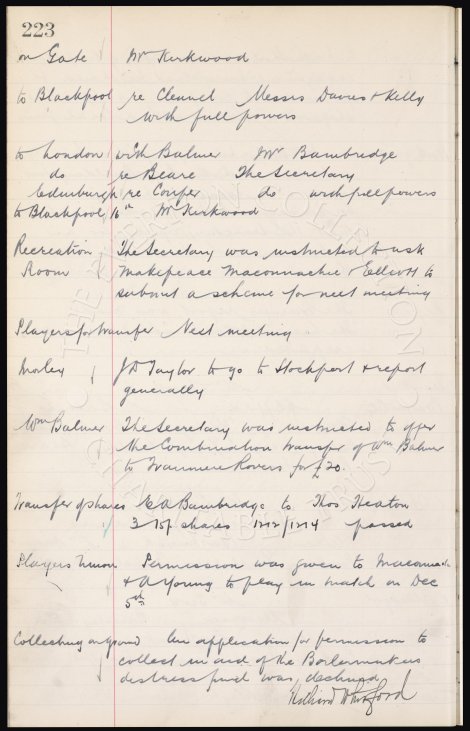 223
on Gate Mr Kirkwood
to Blackpool re Clennel Messrs Davies & Kelly
with full powers
to London with Balmer Mr Bainbridge
do re Beare The Secretary
Edinburgh re Couper do with full powers
to Blackpool 16th Mr Kirkwood
Recreation The Secretary was instructed to ask
Room Makepeace Maconnachie & Elliott to
submit a scheme for next meeting
Players for transfer Next meeting
Morley J D Taylor to go to Stockport & report
generally
Wm Balmer The Secretary was instructed to offer
the Combination transfer of Wm Balmer
to Tranmere Rovers for £20.
Transfer of shares E A Bainbridge to Thos Heaton
3 15/- shares 1212/1214 passed
Players Union Permission was given to
& A Young to play in match on Dec
5th
Collecting on Ground An application for permission to
collect in aid of the Boilermakers
distress fund was declined
THE EVERTON COLLECTION
CHARITABLE TRUST